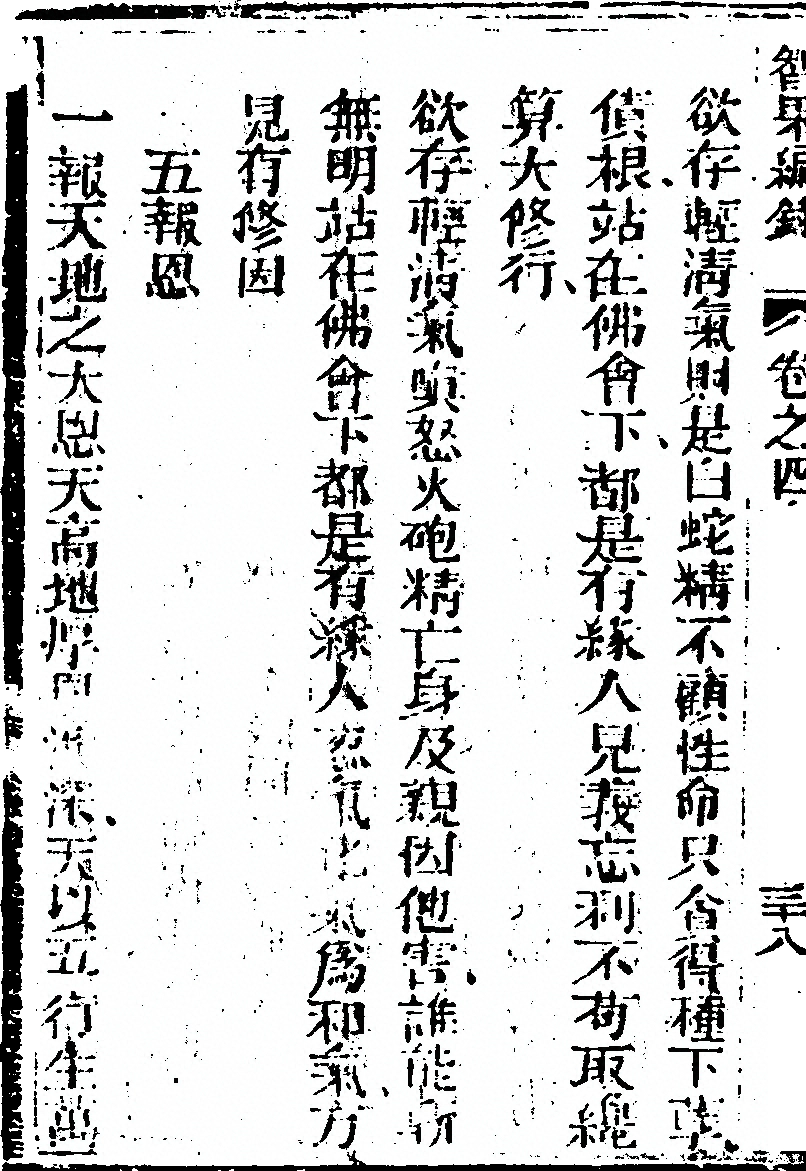 智果編錄 卷之四 三十八
欲存輕淸氣則是白蛇精不顧性命只會得種下孽
債根站在佛會下都是有緣人見義忘利不苟取纔
算大修行
欲存輕淸氣嗔怒火砲精亡身及親因他害誰能斬
無明站在佛會下都是有緣人忍氣化氣爲和氣方
見存修因
五報恩
一報天地之大恩天高地厚深天以五行生萬